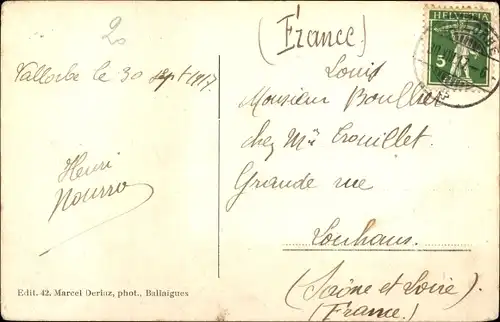 20
Vallorbe le 30 sept 1917
Henri
(France)
Louis
Monsieur Boullier
chez Mr Trouillet
Grande rue
Louhans.
(Saône et Loire)
(France.)
HELVETIA
5
Edit. 42. Marcel Deriaz, phot., Ballaigues